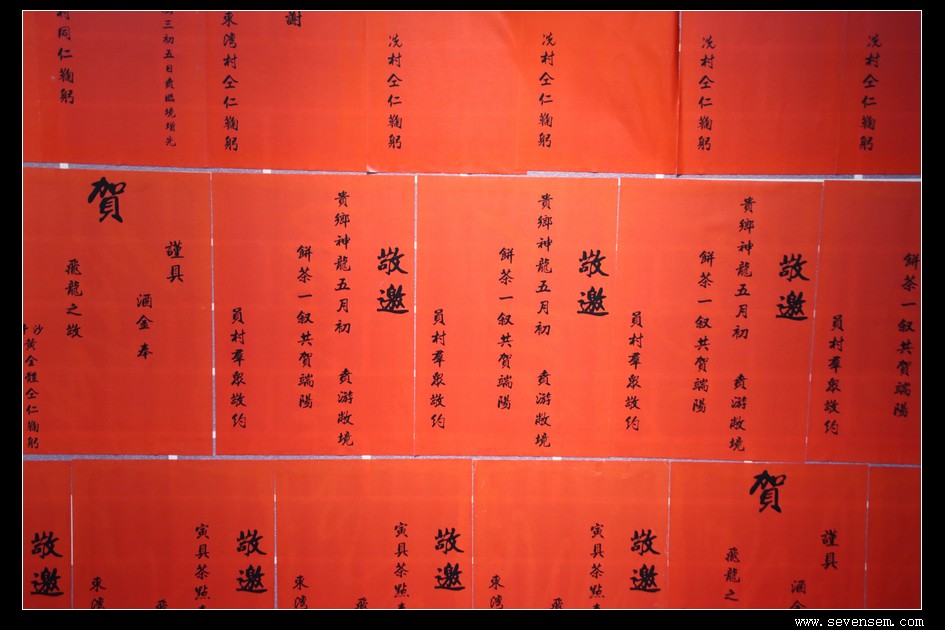 三初五日賁臨境增光
村同仁鞠躬
謝
東灣村仝仁鞠躬
冼村仝仁鞠躬
冼村仝仁鞠躬
冼村仝仁鞠躬
冼村仝仁鞠躬
謹具
酒金 奉
賀
飛龍之敬
沙
黃全體仝仁鞠躬
敬邀
貴鄉神龍五月初 賁游敝境
餅茶一叙共賀端陽
員村羣眾敬約
敬邀
貴鄉神龍五月初 賁游敝境
餅茶一叙共賀端陽
員村羣眾敬約
敬邀
貴鄉神龍五月初 賁游敝境
餅茶一叙共賀端陽
員村羣眾敬約
餅茶一叙共賀端陽
員村羣眾敬約
敬邀
敬邀
寅具茶點
東灣
敬邀
寅具茶點
飛
東灣
敬邀
寅具茶點
飛
東灣
謹具
酒金
賀
飛龍之
www.sevensem.com